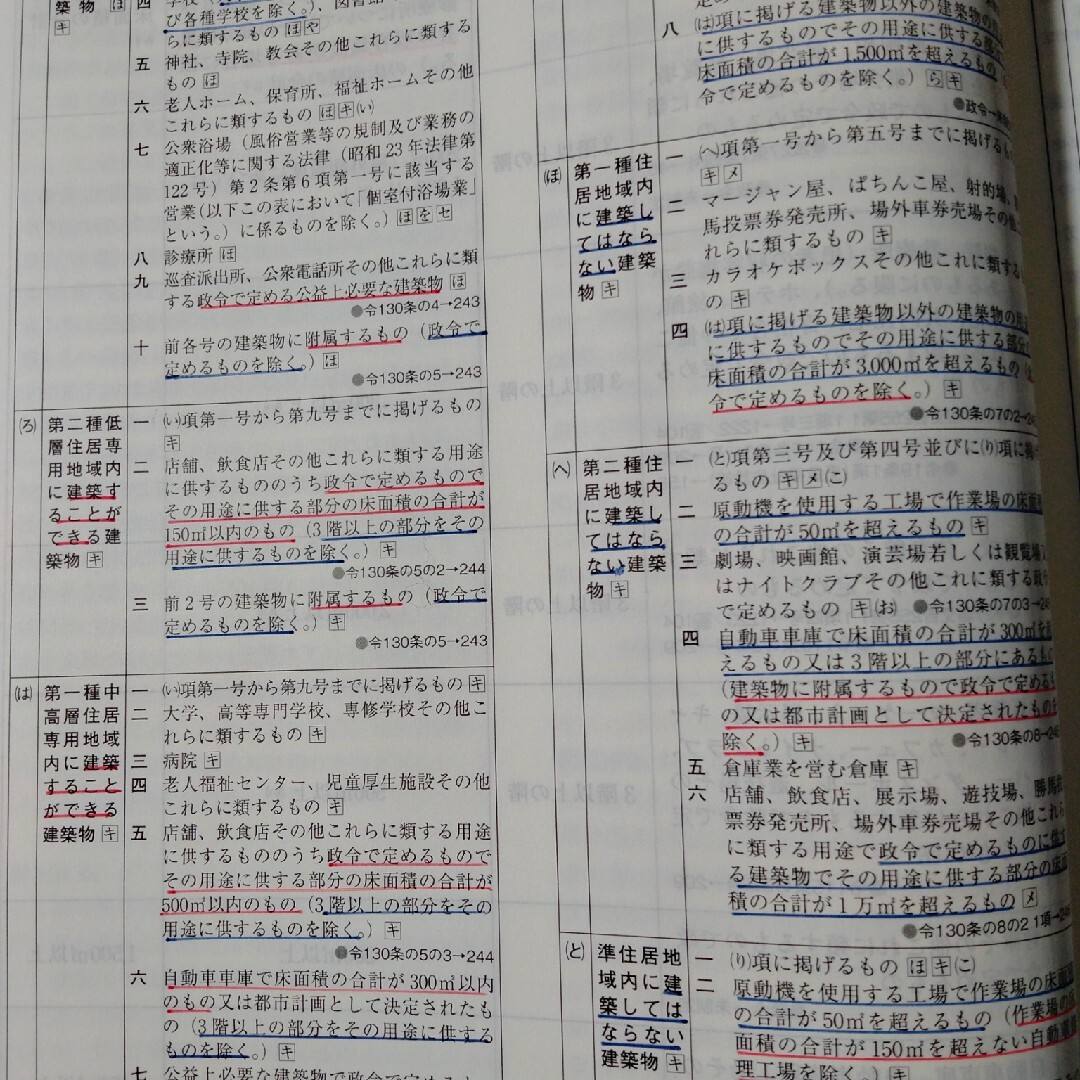 築物 ほ
キ
四
び各種学校を除く。)、図書館
らに類するもの ほ や
五 神社、寺院、教会その他これらに類する
もの ほ
六 老人ホーム、保育所、福祉ホームその他
これらに類するもの ほ キ (い)
七 公衆浴場（風俗営業等の規制及び業務の
適正化等に関する法律（昭和23年法律第
122号）第2条第6項第一号に該当する
営業(以下この表において「個室付浴場業」
という。）に係るものを除く。）ほ を セ
八 診療所 ほ
九 巡査派出所、公衆電話所その他これらに類
する政令で定める公益上必要な建築物 ほ
●令130条の4→243
十 前各号の建築物に附属するもの（政令で
定めるものを除く。）は
●令130条の5→243
(ろ) 第二種低層住居専用地域内に建築することができる建築物 キ
一 (い)項第一号から第九号までに掲げるもの
キ
二 店舗、飲食店その他これらに類する用途
に供するもののうち政令で定めるもので
その用途に供する部分の床面積の合計が
150㎡以内のもの（3階以上の部分をその
用途に供するものを除く。）キ
●令130条の5の2→244
三 前2号の建築物に附属するもの（政令で
定めるものを除く。）キ
●令130条の5→243
(は) 第一種中高層住居専用地域内に建築することができる建築物 キ
一 (い)項第一号から第九号までに掲げるもの キ
二 大学、高等専門学校、専修学校その他こ
れらに類するもの キ
三 病院 キ
四 老人福祉センター、児童厚生施設その他
これらに類するもの キ
五 店舗、飲食店その他これらに類する用途
に供するもののうち政令で定めるもので
その用途に供する部分の床面積の合計が
500㎡以内のもの（3階以上の部分をその
用途に供するものを除く。）キ
●令130条の5の3→244
六 自動車車庫で床面積の合計が300㎡以内
のもの又は都市計画として決定されたも
の（3階以上の部分をその用途に供する
ものを除く。）キ
七 公益上必要な建築物で政令で定める
八 (は)項に掲げる建築物以外の建築物の
に供するものでその用途に供する部
床面積の合計が1,500㎡を超えるもの
令で定めるものを除く。）ら キ
●政令
(ほ) 第一種住居地域内に建築してはならない建築物 キ
一 (へ)項第一号から第五号までに掲げる
キ メ
二 マージャン屋、ぱちんこ屋、射的場、
馬投票券発売所、場外車券売場その他
れらに類するもの キ
三 カラオケボックスその他これに類する
の キ
四 (は)項に掲げる建築物以外の建築物の用
に供するものでその用途に供する部分
床面積の合計が3,000㎡を超えるもの
令で定めるものを除く。）キ
●令130条の7の2→
(へ) 第二種住居地域内に建築してはならない建築物 キ
一 (と)項第三号及び第四号並びに(り)項に
るもの キ メ (こ)
二 原動機を使用する工場で作業場の床面
の合計が50㎡を超えるもの キ
三 劇場、映画館、演芸場若しくは観覧場
はナイトクラブその他これに類する政
で定めるもの キ (お) ●令130条の7の3→
四 自動車車庫で床面積の合計が300㎡を
えるもの又は3階以上の部分にあるもの
（建築物に附属するもので政令で定める
の又は都市計画として決定されたもの
除く。）キ ●令130条の8→
五 倉庫業を営む倉庫 キ
六 店舗、飲食店、展示場、遊技場、勝馬
票券発売所、場外車券売場その他これら
に類する用途で政令で定めるものに供
る建築物でその用途に供する部分の床
積の合計が1万㎡を超えるもの メ
●令130条の8の2 1項→
(と) 準住居地域内に建築してはならない建築物 キ
一 (り)項に掲げるもの ほ キ (こ)
二 原動機を使用する工場で作業場の床面
の合計が50㎡を超えるもの（作業場の
面積の合計が150㎡を超えない自動車
理工場を除く。）キ